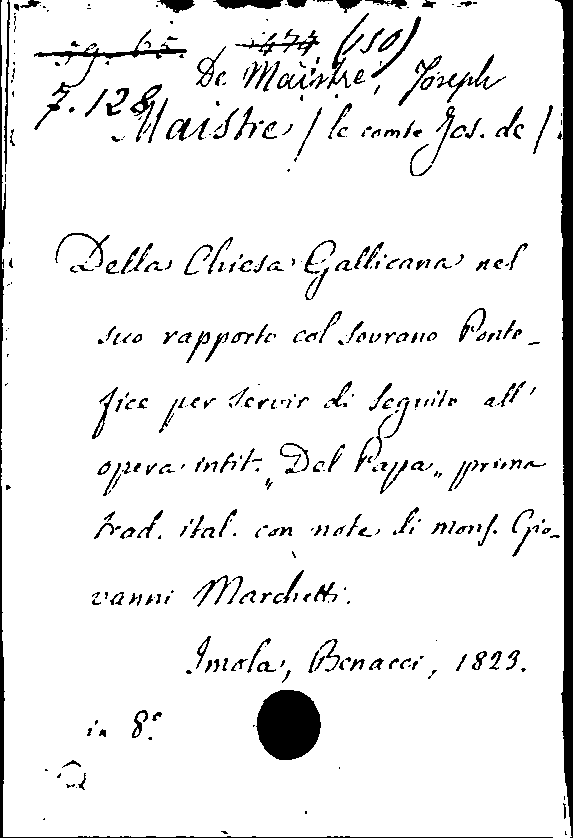 59. 65. 1474 (150)
De Maistre, Joseph
7.128
Maistre / le comte Jos. de /
Della Chiesa Gallicana nel
suo rapporto col sovrano Ponte-
fice per servir di seguito all'
opera intit. „Del Papa„ prima
trad. ital. con note di mons. Gio-
vanni Marchetti.
Imola, Benacci, 1823.
in 8°